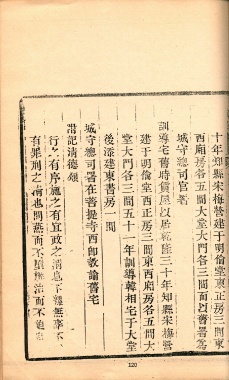 十年知縣朱梅營建于明倫堂東正房三間東
西廂房各五間大堂大門各三間而以舊署為
城守司官署
訓導宅舊時賃屋以居乾隆三十年知縣朱梅營
建于明倫堂西正房三間東西廂房各五間大
堂大門各三間五十一年訓導韓相宅于大堂
後添建東書房一間
城守總司署在菩提寺西即教諭舊宅
潛記清德頌
行之有序施之有宜政之清也下難無事不
有罪刑之清也問蔬而不煩辦治而不迫在
120